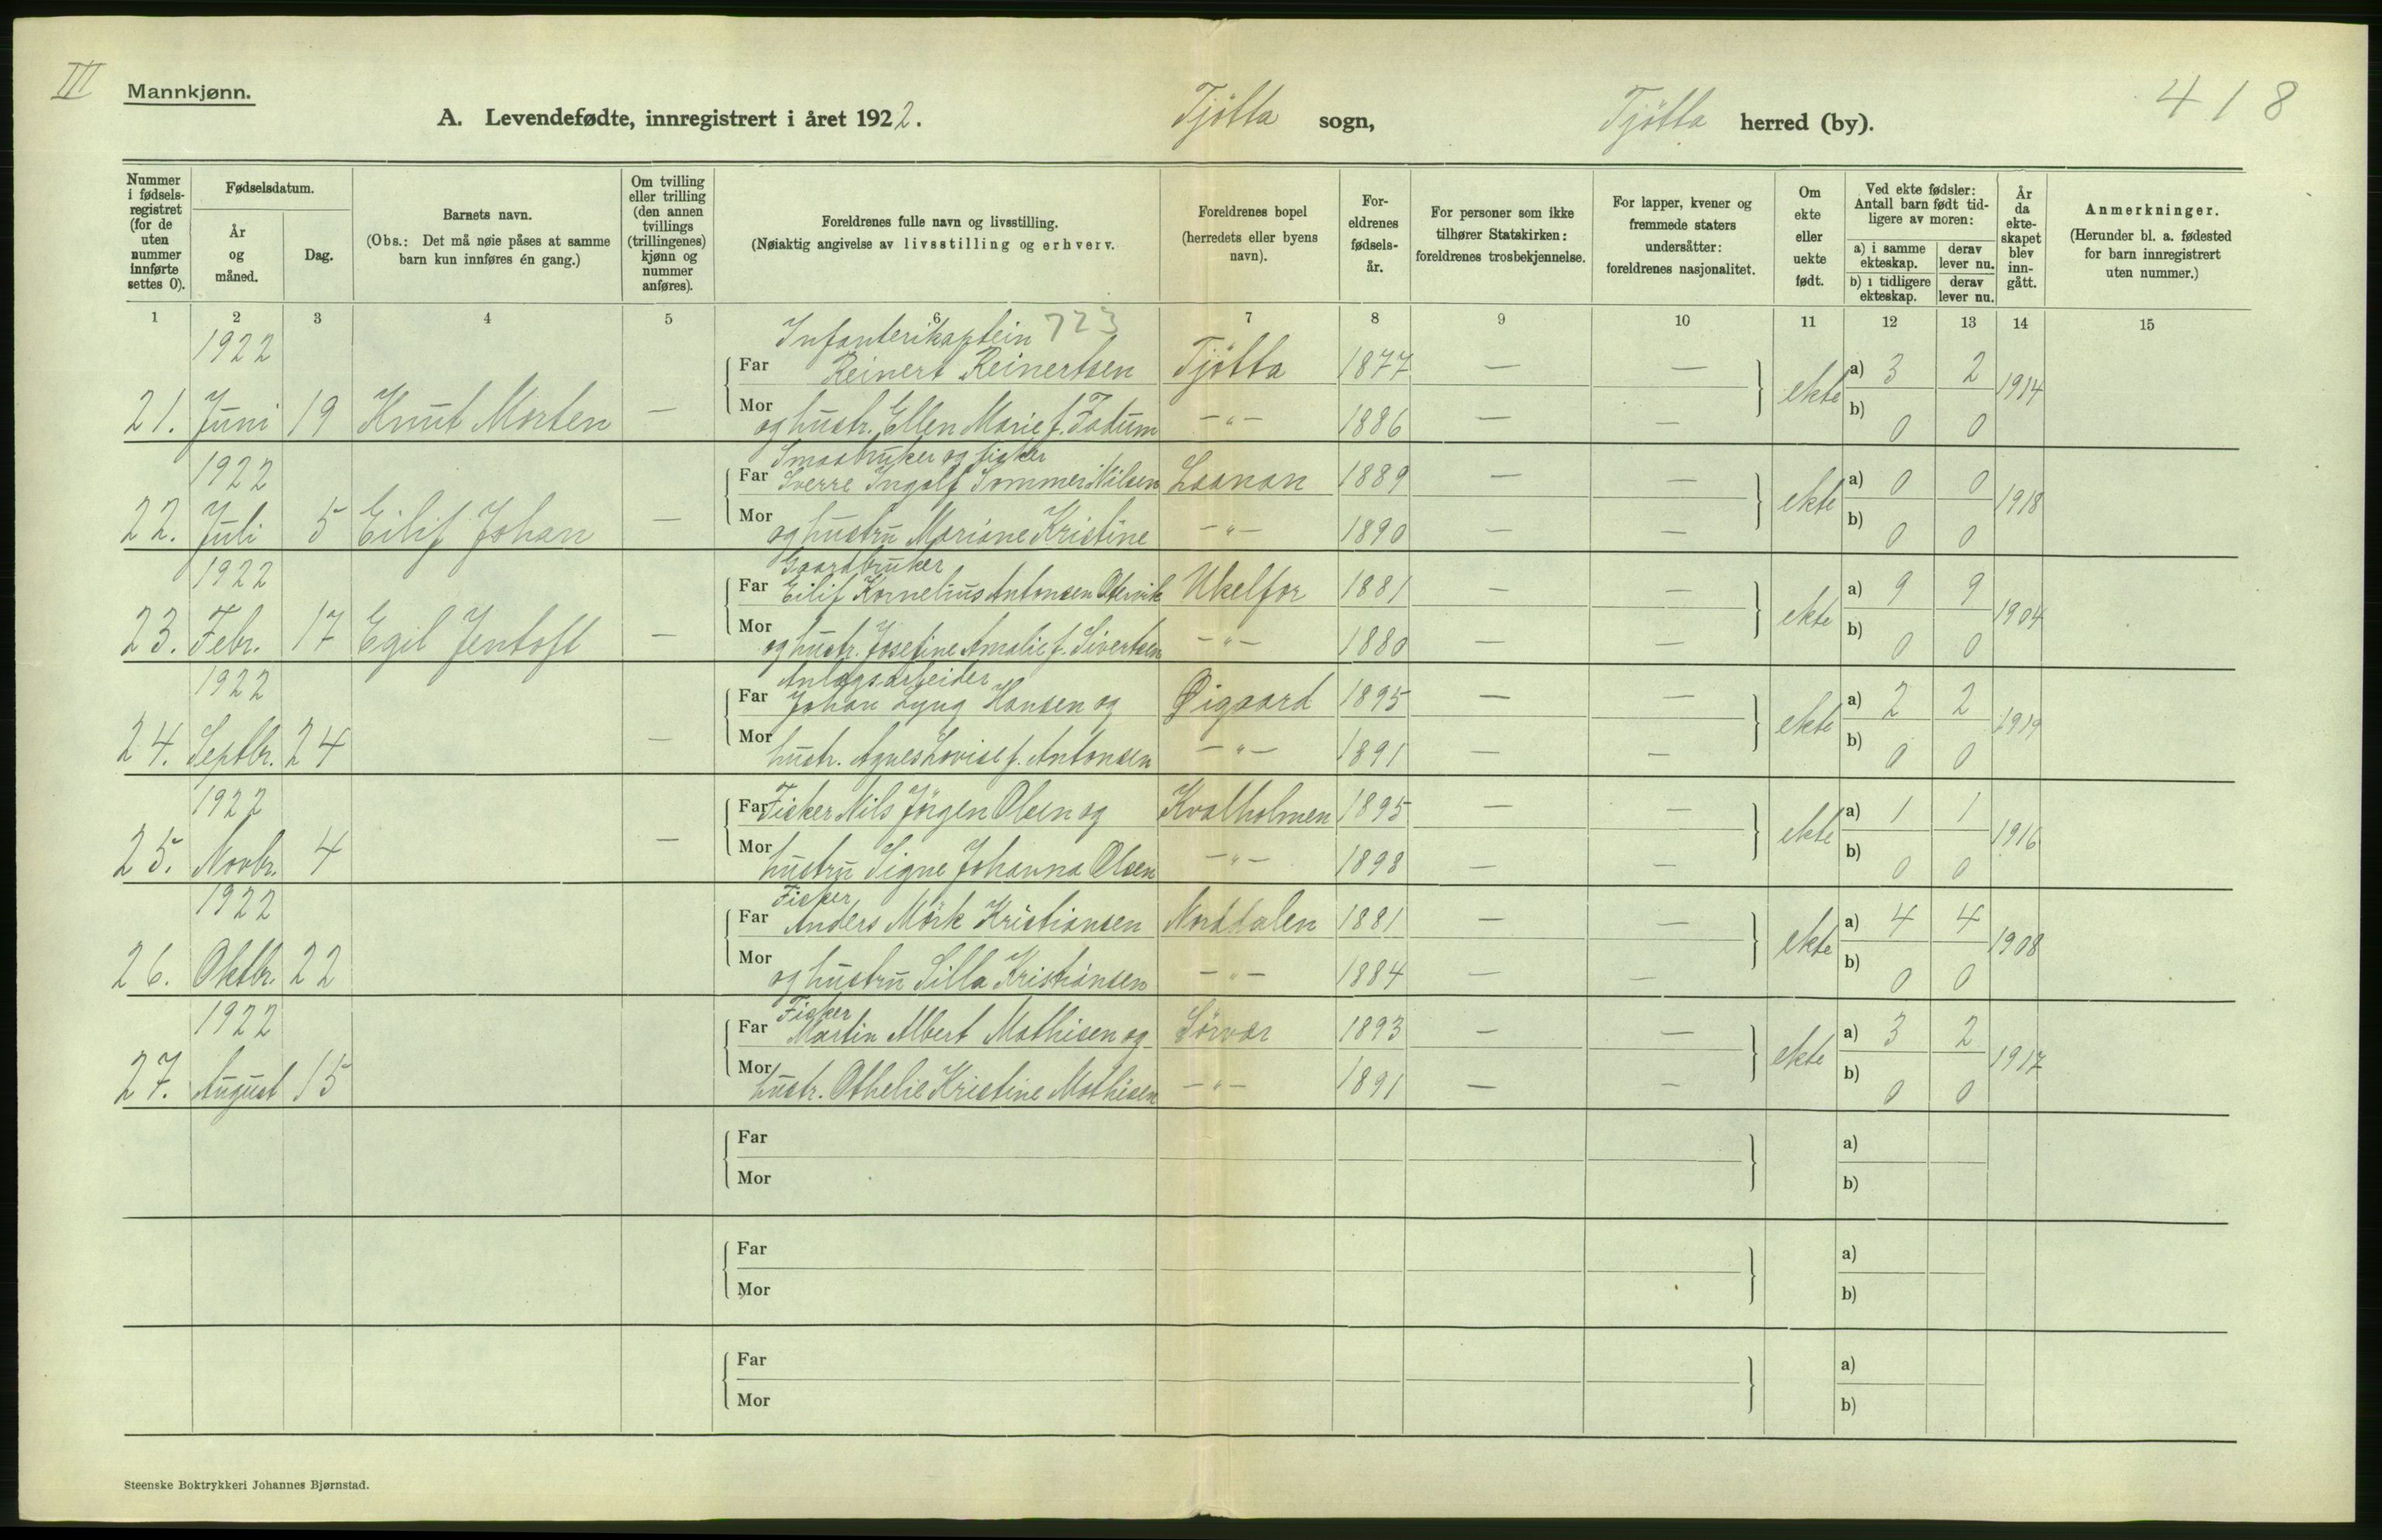 III
Mannkjønn.
418
A. Levendefødte, innregistrert i året 1922. Tjötta sogn, Tjötta herred (by).
Nummer i fødselsregistret (for de uten nummer innførte settes 0).
Fødselsdatum.
År og måned.
Dag.
Barnets navn.
(Obs.: Det må nøie påses at samme barn kun innføres én gang.)
Om tvilling eller trilling (den annen tvillings (trillingenes) kjønn og nummer anføres).
Foreldrenes fulle navn og livsstilling.
(Nøiaktig angivelse av livsstilling og erhverv.
Foreldrenes bopel (herredets eller byens navn).
Foreldrenes fødselsår.
For personer som ikke tilhører Statskirken: foreldrenes trosbekjennelse.
For lapper, kvener og fremmede staters undersåtter: foreldrenes nasjonalitet.
Om ekte eller uekte født.
Ved ekte fødsler: Antall barn født tidligere av moren:
a) i samme ekteskap. derav lever nu.
b) i tidligere ekteskap. derav lever nu.
År da ekteskapet blev inngått.
Anmerkninger.
(Herunder bl. a. fødested for barn innregistrert uten nummer.)
1 2 3 4 5 6 7 8 9 10 11 12 13 14 15
1922 Infanterikaptein 723
Far Reinert Reinertsen Tjötta 1877 — — ekte a) 3 2 1914
21. Juni 19 Knut Morten — Mor og hustr. Ellen Marie f. Fadum —"— 1886 — — b) 0 0
1922 Smaabruker og fisker
Far Sverre Ingolf Sommer Nilsen Laanan 1889 — — ekte a) 0 0 1918
22. Juli 5 Eilif Johan — Mor og hustru Mariane Kristine —"— 1890 — — b) 0 0
1922 Gaardbruker
Far Eilif Kornelius Antonsen Ukelfor 1881 — — ekte a) 9 9 1904
23. Febr. 17 Egil Jentoft — Mor og hustr. Josefine Amalie f. Sivertsen —"— 1880 — — b) 0 0
1922 Anlægsarbeider
Far Johan Lyng Hansen og Øigaard 1895 — — ekte a) 2 2 1919
24. Septbr. 24 — Mor hustr. Agnes Lovise f. Antonsen —"— 1891 — — b) 0 0
1922 Far Fisker Nils Jörgen Olsen og Kvalholmen 1895 — — ekte a) 1 1 1916
25. Novbr. 4 — Mor hustru Signe Johanna Olsen —"— 1898 — — b) 0 0
1922 Fisker
Far Anders Mörk Kristiansen Norddalen 1881 — — ekte a) 4 4 1908
26. Oktbr. 22 Mor og hustru Silla Kristiansen —"— 1884 — — b) 0 0
1922 Fisker
Far Martin Albert Mathisen og Sörvær 1893 — — ekte a) 3 2 1917
27. August 15 Mor hustr. Othelie Kristine Mathisen —"— 1891 — — b) 0 0
Far a)
Mor b)
Far a)
Mor b)
Far a)
Mor b)
Steenske Boktrykkeri Johannes Bjørnstad.